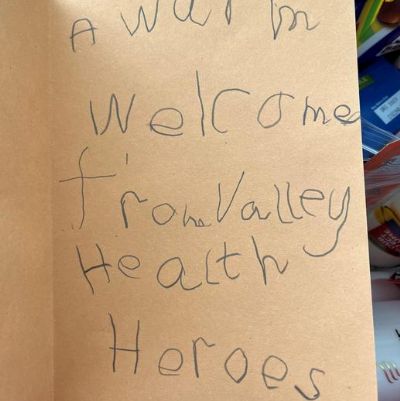 A warm
Welcome
from Valley
Health
Heroes